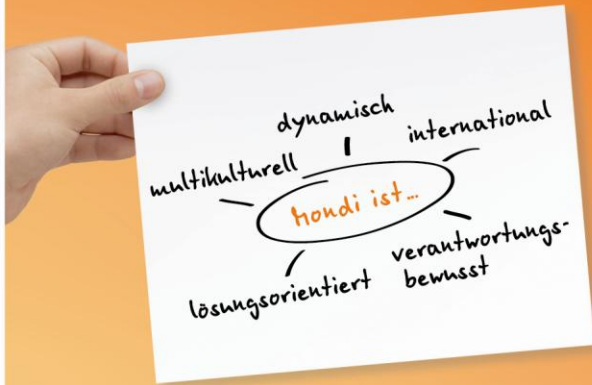 dynamisch
international
multikulturell
Mondi ist...
verantwortungs-
bewusst
lösungsorientiert